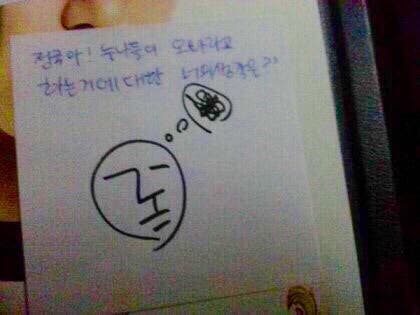 정국아! 누나들이 오빠라고
하는거에 대한 너의생각은??